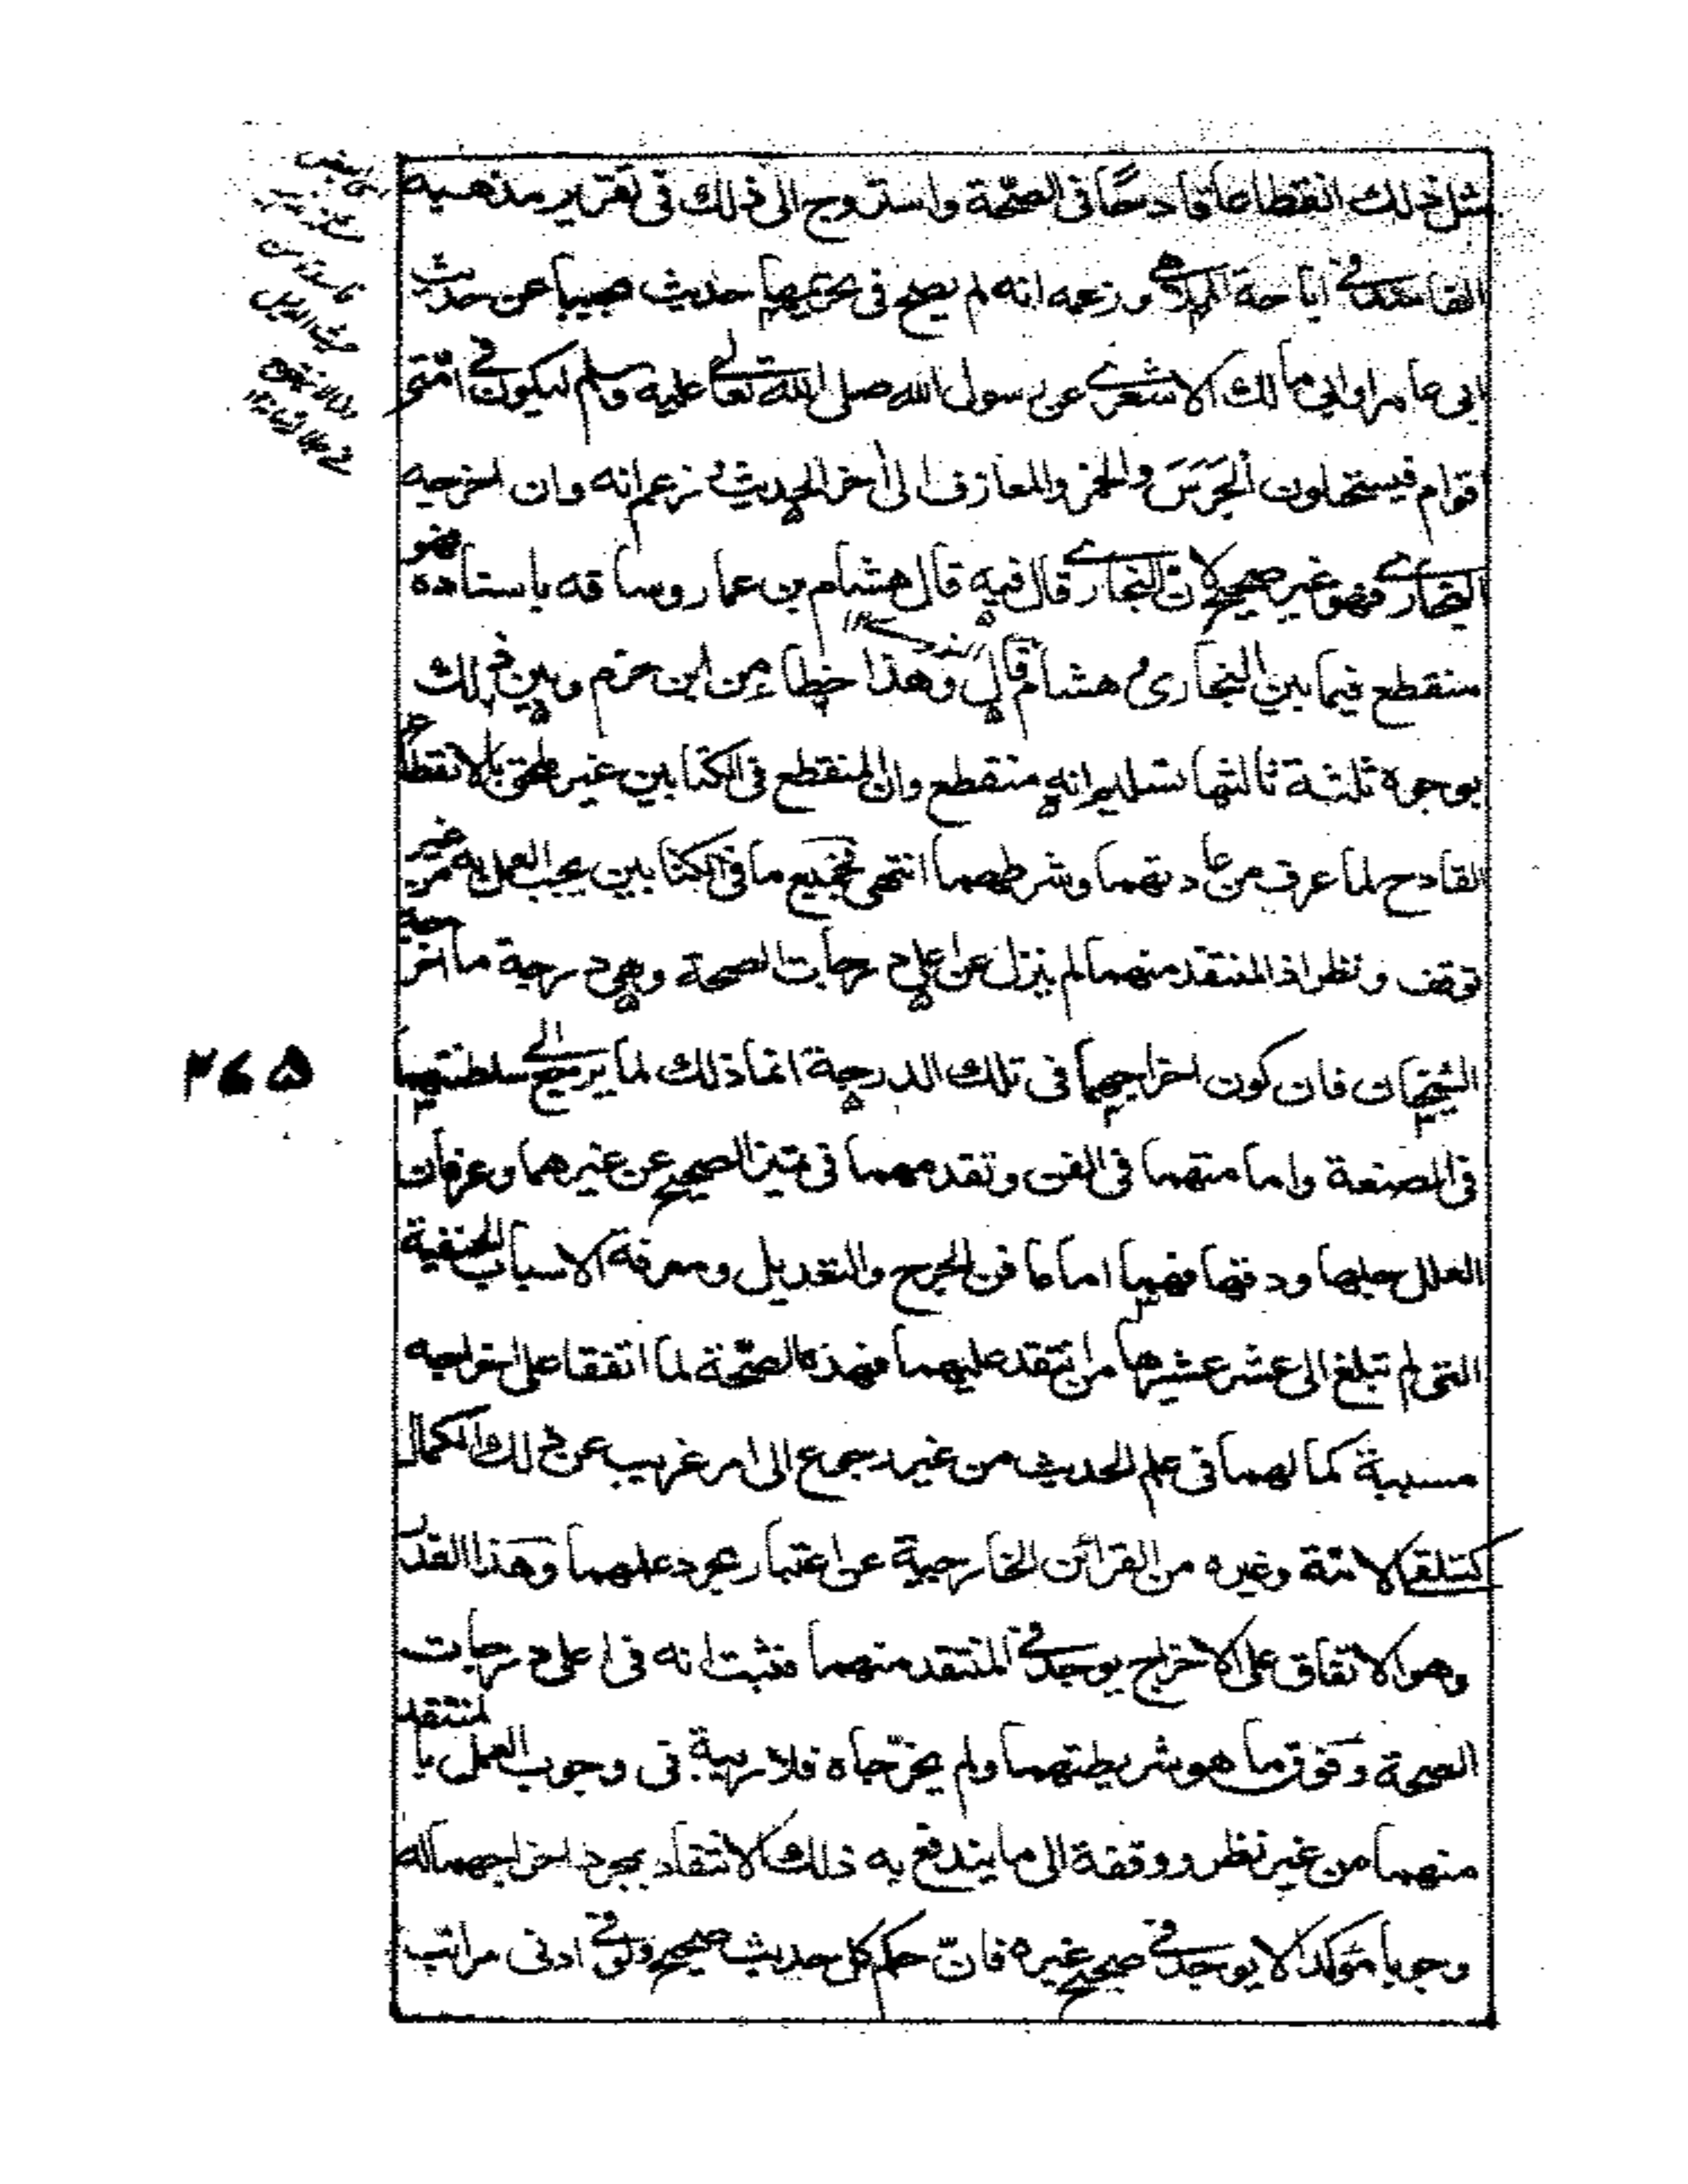 مثل ذلك انقطاعا قادحًا فى الصحّة واستروح الى ذلك فى تقرير مذهبه
الفاسد فى اباحة الملاهى وزعمه انه لم يصح فى تحريمها حديث مجيبا عن حديث
ابى عامر او ابى مالك الاشعرى عن رسول الله صلى الله تعالى عليه وسلم ليكونن فى امتى
اقوام فيستحلون الحرَ والخمر والمعازف الى اخر الحديث فزعم انه وان اخرجه
البخارى فهو غير صحيح لان البخارى قال فيه قال هشام بن عمار وساقه باسناده فهو
منقطع فيما بين البخارى وهشام قال وهذا خطاء من ابن حزم وبين ذلك
بوجوه ثلثة ثالثها تسليم انه منقطع وان المنقطع فى الكتابين غير ملحق بالانقطاع
القادح لما عرف من عادتهما وشرطهما انتهى فجميع ما فى الكتابين يجب العمل به من غير
توقف ونظر اذ المنتقد منهما لم ينزل عن اعلى درجات الصحة وهى درجة ما اخرجه
الشيخان فان كون اخراجهما فى تلك الدرجة انما ذلك لما يرجع الى سلطنتهما
فى الصنعة وامامتهما فى الفن وتقدمهما فى تميز الصحيح عن غيرهما وعرفان
العلل جلها ودقها فهما اماما فن الجرح والتعديل ومعرفة الاسباب الخفية
التى لم تبلغ الى عشر عشيرها من انتقد عليهما فهذه الصحّة لما اتفقا على اخراجه
مسببة كمالهما فى علم الحديث من غير رجوع الى امر غريب عن ذلك الكمال
كتلقى الامة وغيره من القرائن الخارجية عن اعتبار جود علمهما وهذا القدر
وهو الاتفاق على الاخراج يوجد فى المنتقد منهما فثبت انه فى اعلى درجات
الصحة وفوق ما هو شريطتهما ولم يخرّجاه فلا ريبة فى وجوب العمل بالمنتقد
منهما من غير نظر ووقفة الى ما يندفع به ذلك الانتقاد بمجرد اخراجهما له
وجوبا مؤكدا لا يوجد فى صحيح غيره فانّ حكم كل حديث صحيح ولو فى ادنى مراتب
٢٦٥